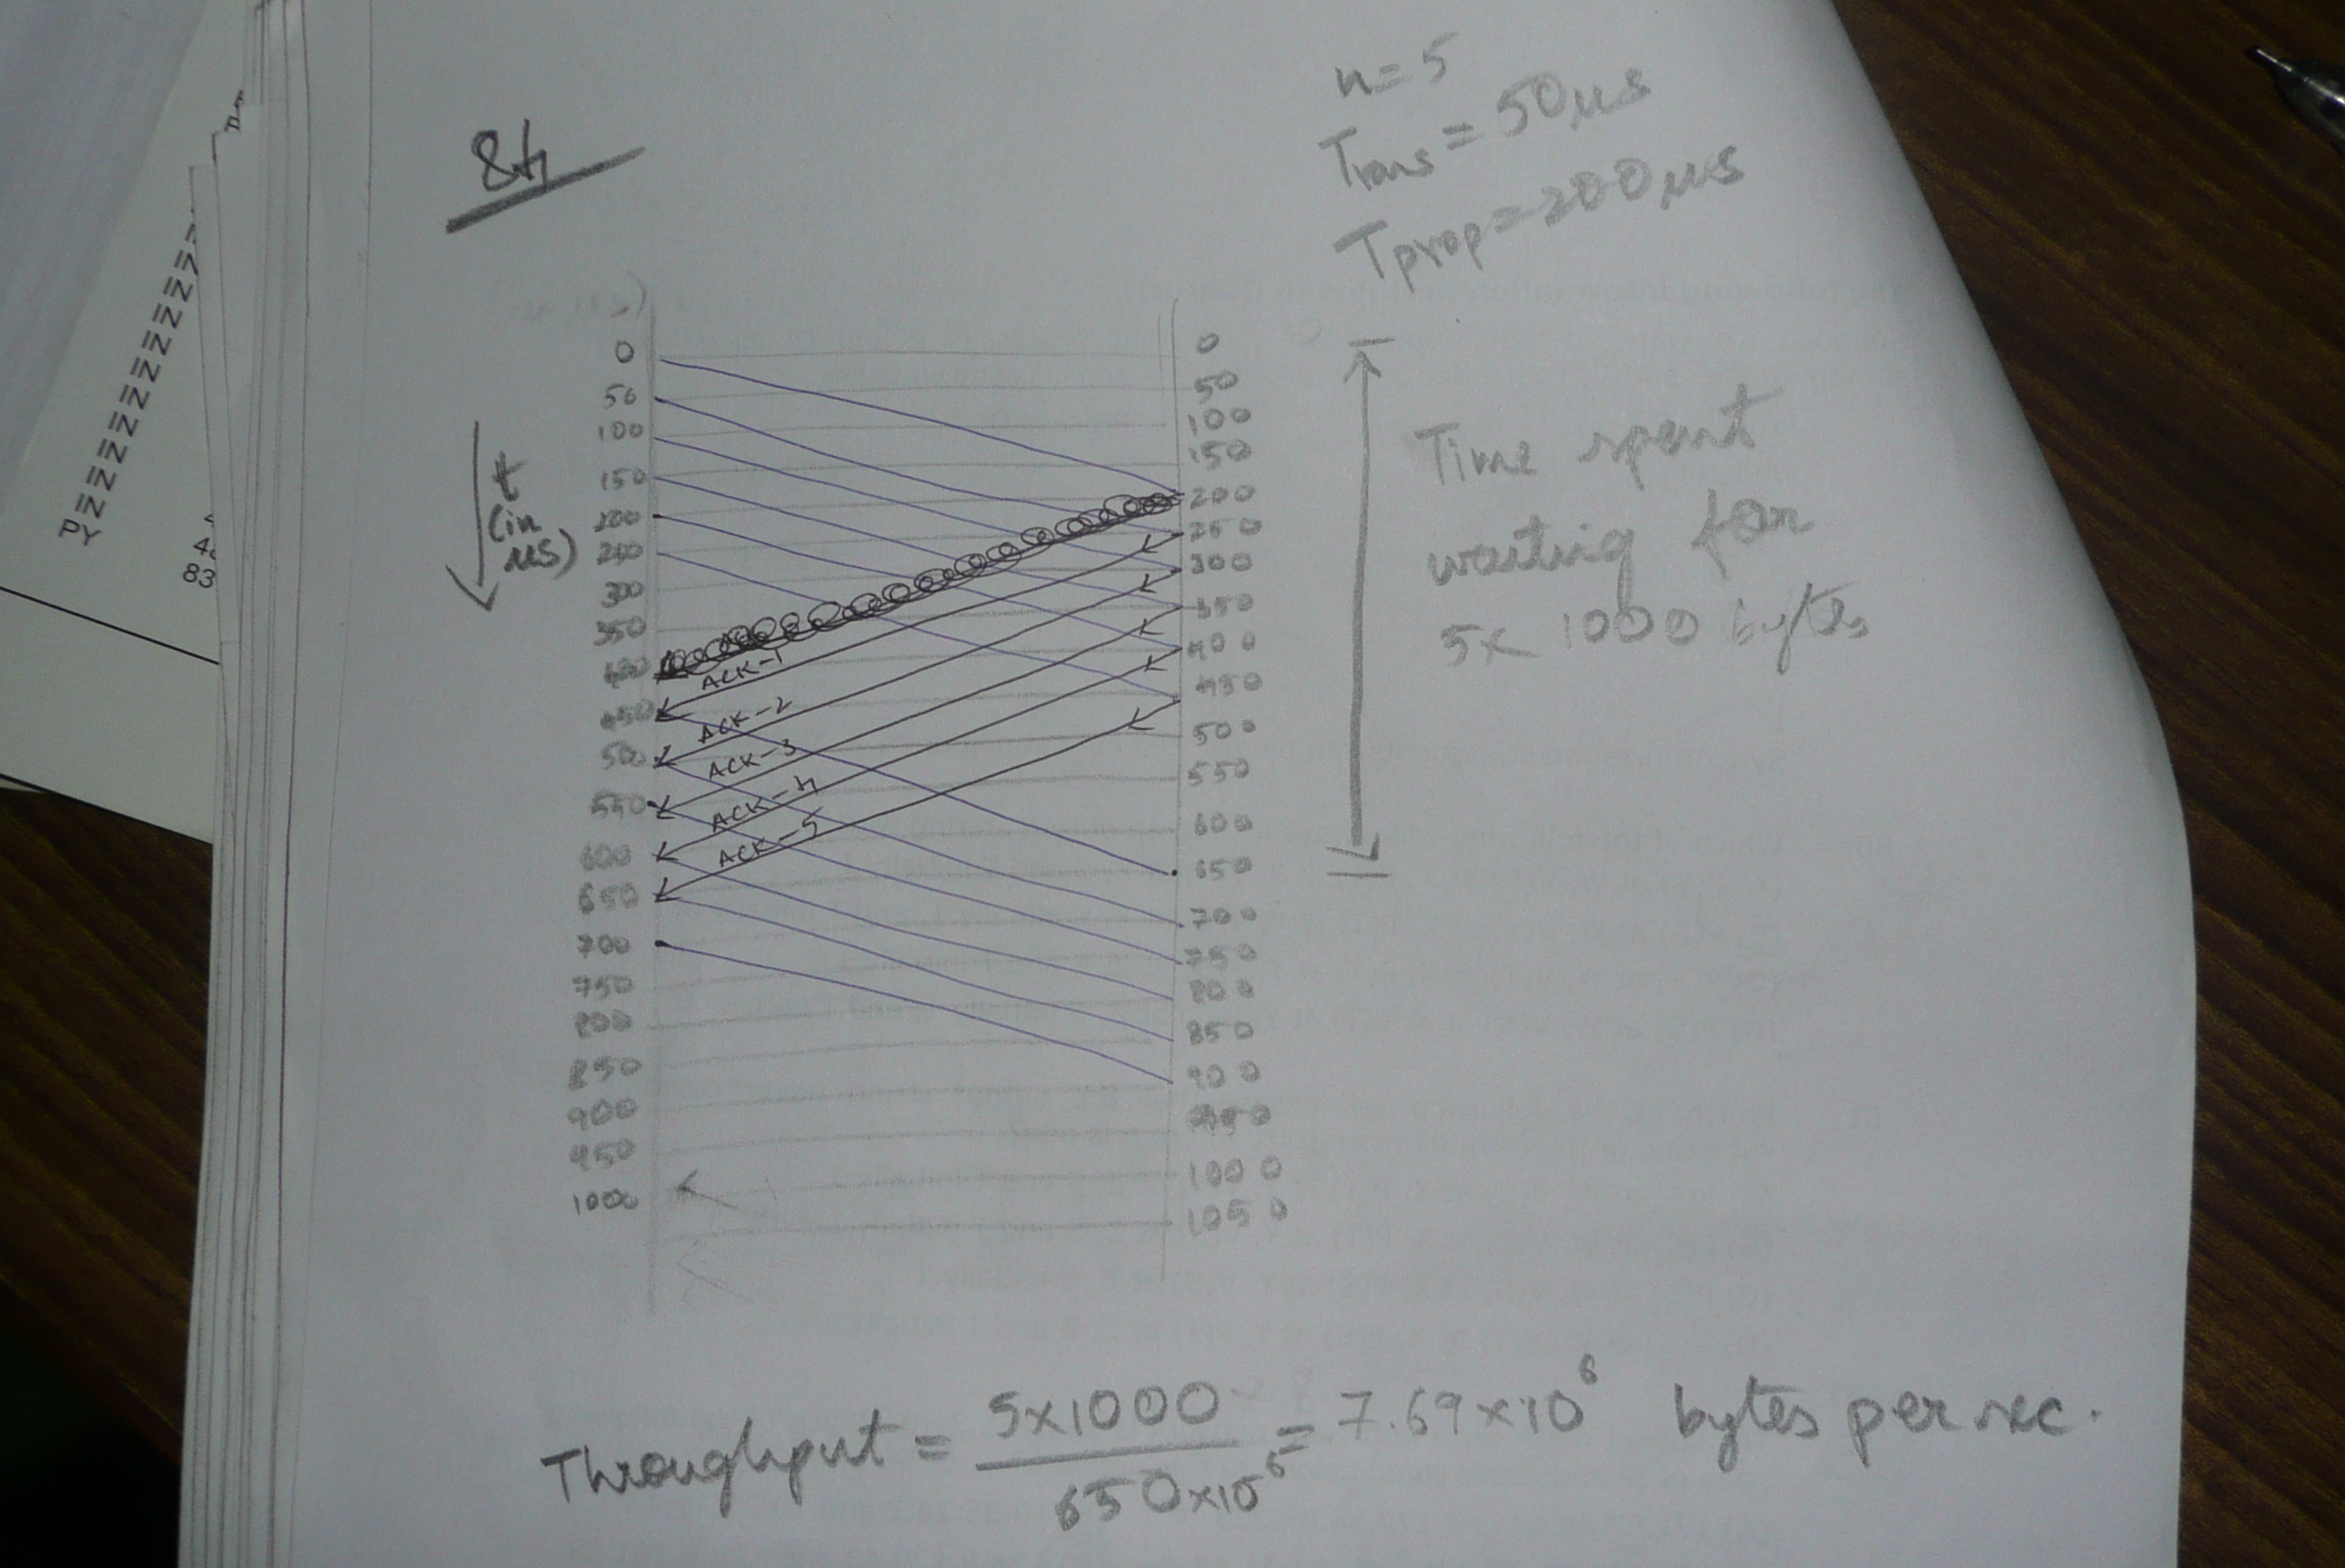 84
n=5
Trans = 50μs
Tprop = 200μs
0
50
100
150
200
250
300
350
400
450
500
550
600
650
700
750
800
850
900
950
1000
t
(in
μs)
ACK-1
ACK-2
ACK-3
ACK-4
ACK-5
0
50
100
150
200
250
300
350
400
450
500
550
600
650
700
750
800
850
900
1000
1050
Time spent
waiting for
5x 1000 bytes
Throughput = 5x1000 / 650x10⁶ = 7.69x10⁶ bytes per sec.
PY
83